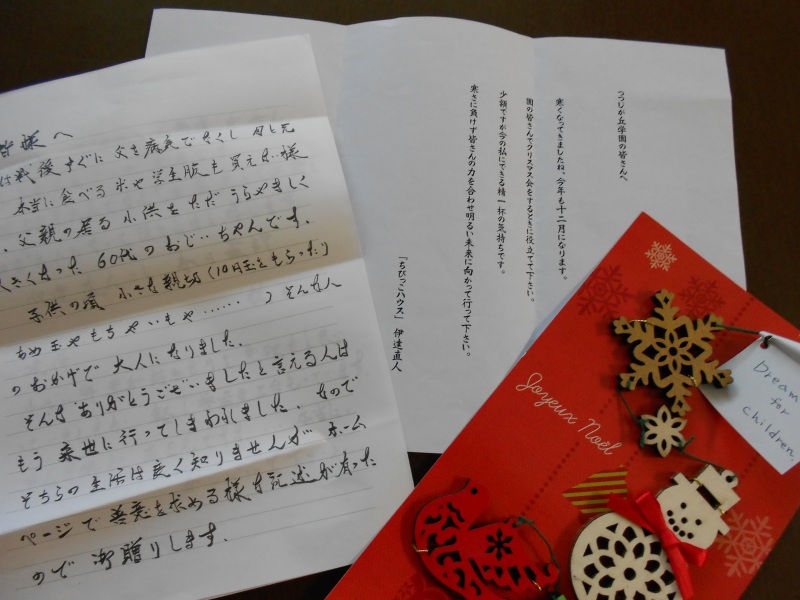 皆様へ
は戦後すぐに父を病気でなくし 母と兄
本当に食べる米や学生服も買えない様
、父親の居る小供をただうらやましく
大きくなった60代のおじいちゃんです。
子供の頃 小さな親切(10円玉をもらったり
あめ玉やもちやいもや……)そんな人
のおかげで大人になりました。
そんなありがとうございましたと言える人は
もう来世に行ってしまわれました。なので
そちらの生活は良く知りませんが ホーム
ページで善意を求める様な記述が有った
ので御贈りします。
つつじが丘学園の皆さんへ
寒くなってきましたね、今年も十二月になります。
園の皆さんでクリスマス会をするときに役立てて下さい。
少額ですが今の私にできる精一杯の気持ちです。
寒さに負けず皆さんの力を合わせ明るい未来に向かって行って下さい。
「ちびっこハウス」 伊達直人
Joyeux Noël
Dream
for
children.